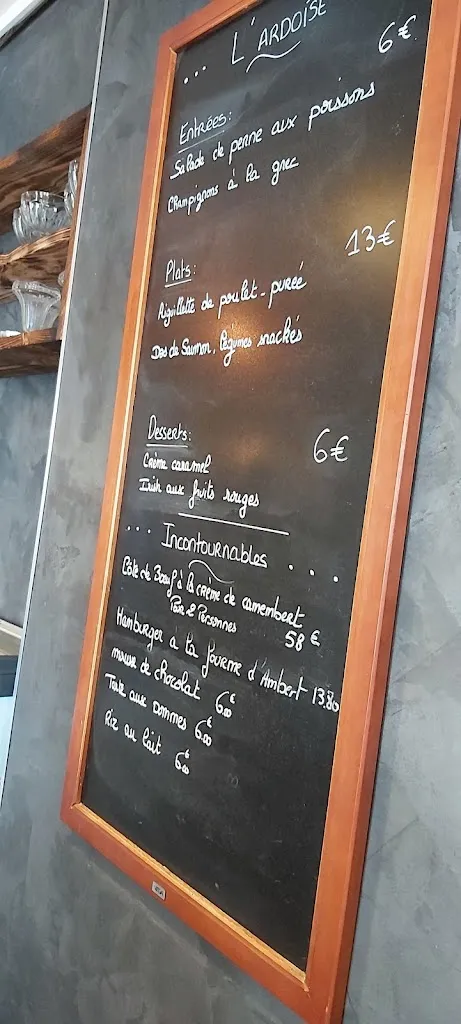 ... L'ARDOISE
6€
Entrées:
Salade de penne aux poissons
Champignons à la grec
13€
Plats:
Aiguillette de poulet - pureé
Dos de Saumon, légumes snackés
6€
Desserts:
Crème caramel
aux fruits rouges
... Incontournables ...
Côte de Boeuf à la crème de camembert
Pour 2 Personnes 58 €
Hamburger a la fourme d'Ambert 13.80
mousse de chocolat 6€00
Tarte aux Pommes 6€00
Riz au lait 6€00